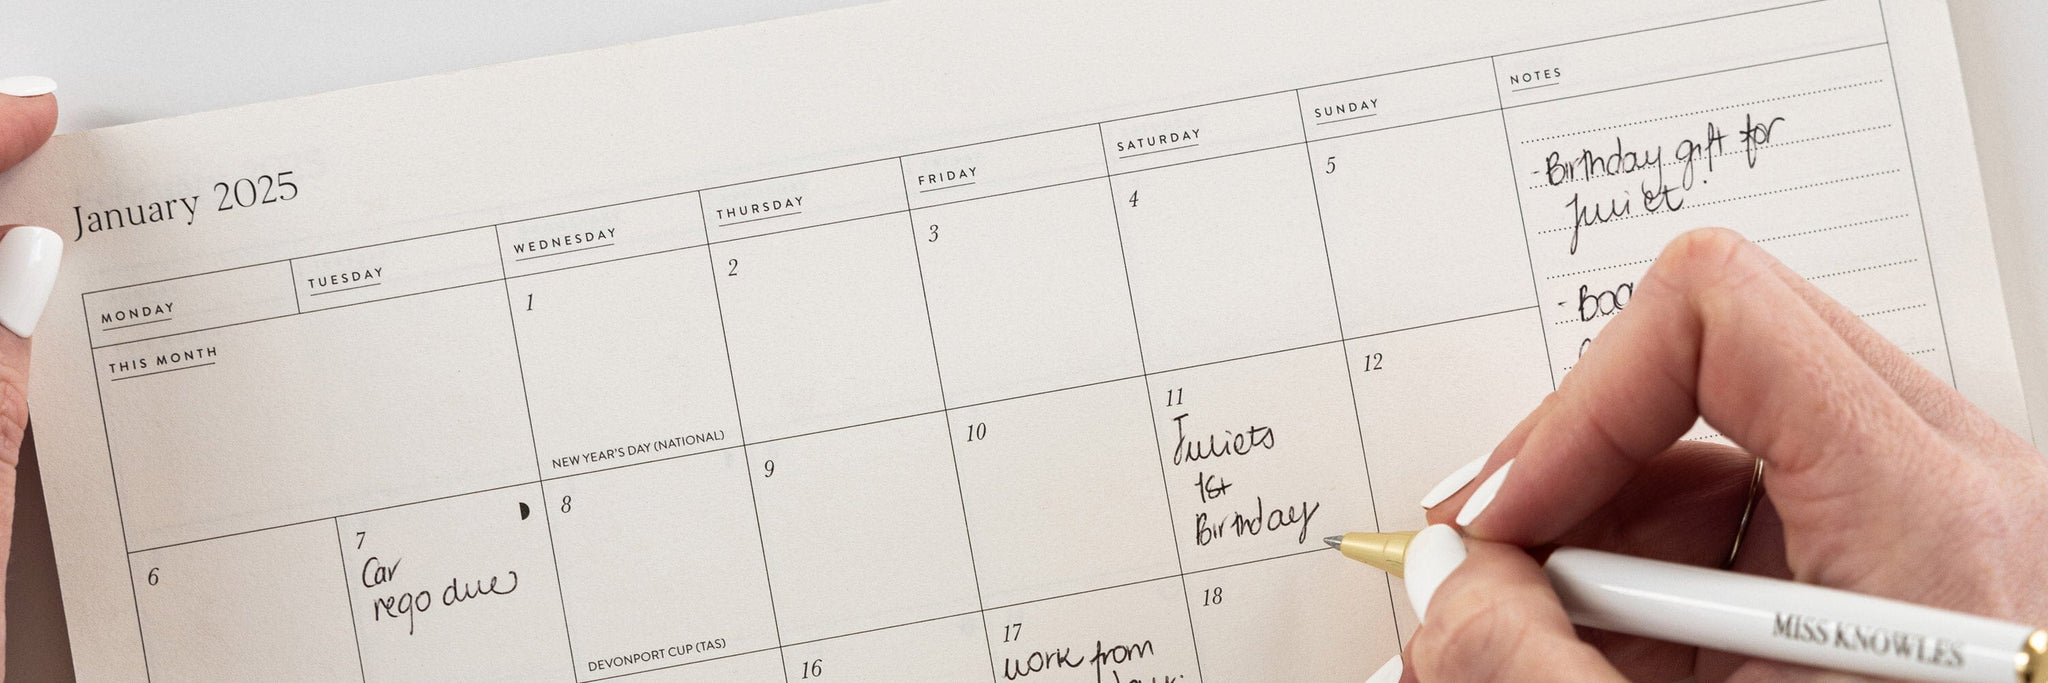 January 2025
MONDAY
TUESDAY
WEDNESDAY
THURSDAY
FRIDAY
SATURDAY
SUNDAY
NOTES
THIS MONTH
1
NEW YEAR'S DAY (NATIONAL)
2
3
4
5
6
7
Car
rego due
8
DEVONPORT CUP (TAS)
9
10
11
Juliets
1st
Birthday
12
16
17
work from
18
-Birthday gift for
Juliet
MISS KNOWLES